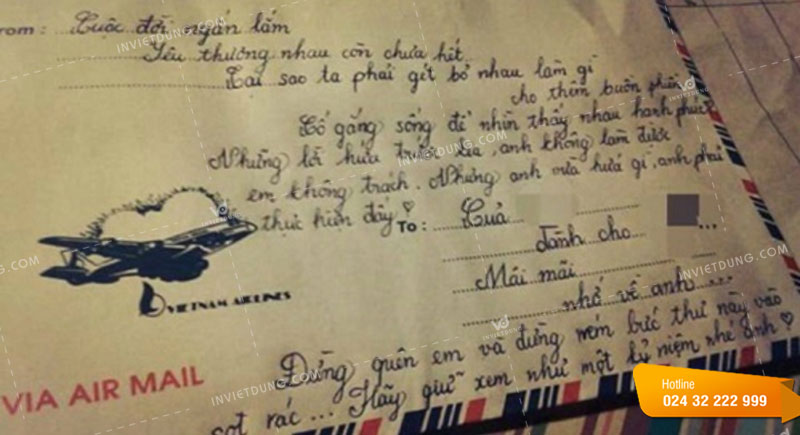 From: Cuộc đời ngắn lắm
Yêu thương nhau còn chưa hết
Tại sao ta phải gét bỏ nhau làm gì
cho thêm buồn phiền
Cố gắng sống để nhìn thấy nhau hạnh phúc
Những lời hứa trước kia, anh không làm được
em không trách. Nhưng anh vừa hứa gì, anh phải
thực hiện đấy ♡
To: Của
dành cho ...
Mãi mãi
nhớ về anh ...
Đừng quên em và đừng ném bức thư này vào
sọt rác ... Hãy giữ xem như một kỷ niệm nhé anh ♡
VIETNAM AIRLINES
VIA AIR MAIL
Hotline
024 32 222 999
INVIETDUNG.COM